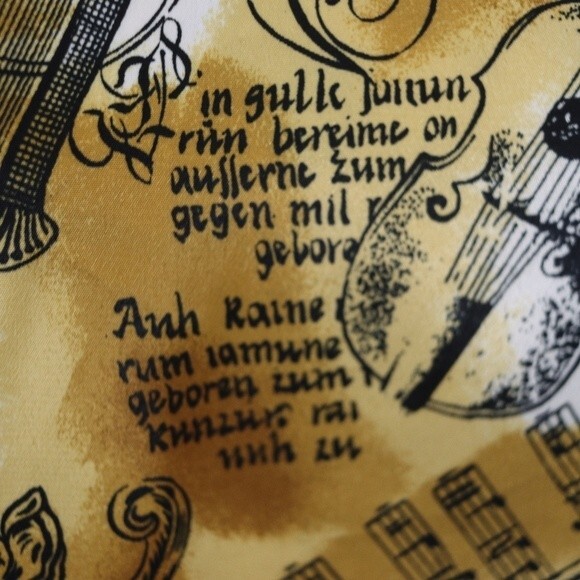 in gulle
rün bereime on
ausserne zum
gegen mil
gebore
Anh Raine
rum iamune
geboren zum
kunzur rai
nuh zu